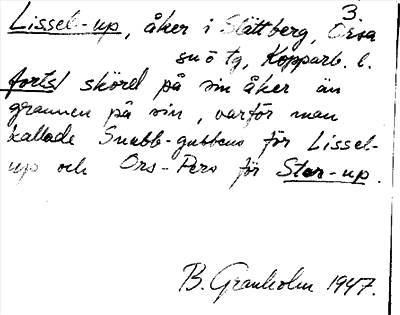 3
Lissel-up, åker i Slättberg, Orsa
sn ö tg, Kopparb. l.
forts/ skörd på sin åker än
grannen på sin, varför man
kallade Snubb-gubbens för Lissel-
up och Ors-Pers för Stor-up.
B. Granholm 1947.